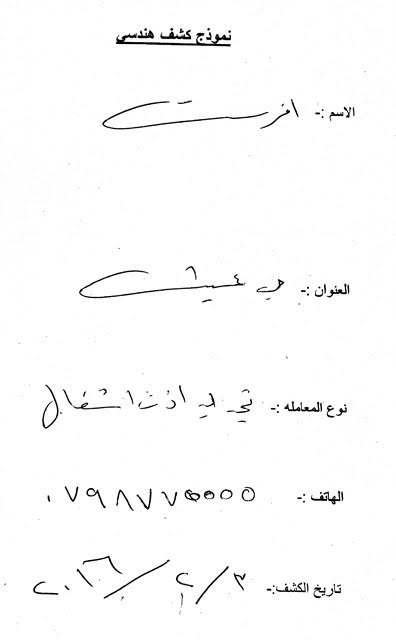 نموذج كشف هندسي
الاسم :- افرست
العنوان :- حي
نوع المعامله :- تجديد اذن اشغال
الهاتف :- ٠٧٩٨٧٧٥٥٥٥
تاريخ الكشف:- ٣/٢/٢٠١٦